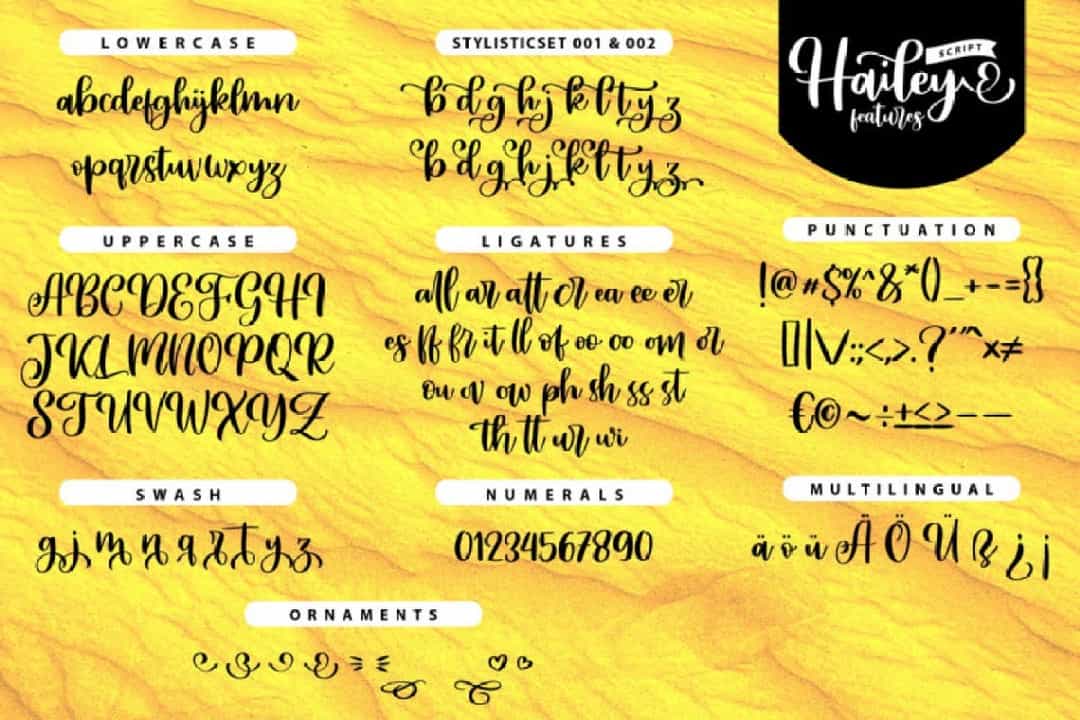 LOWERCASE
abcdefghijklmn
opqrstuvwxyz
STYLISTICSET 001 & 002
b d g h j k l t y z
b d g h j k l t y z
Hailey SCRIPT
features
UPPERCASE
ABCDEFGHI
JKLMNOPQR
STUVWXYZ
LIGATURES
all ar att cr ea ee er
es ff fr it ll of oo om or
ou ov ow ph sh ss st
th tt ur wi
PUNCTUATION
!@#$%^&*()_+-={}
[]|\/:;<,>.?'"^x≠
€©~÷±≤≥–—
SWASH
g j m n q r t y z
NUMERALS
01234567890
MULTILINGUAL
ä ö ü Ä Ö Ü ß ¿ ¡
ORNAMENTS